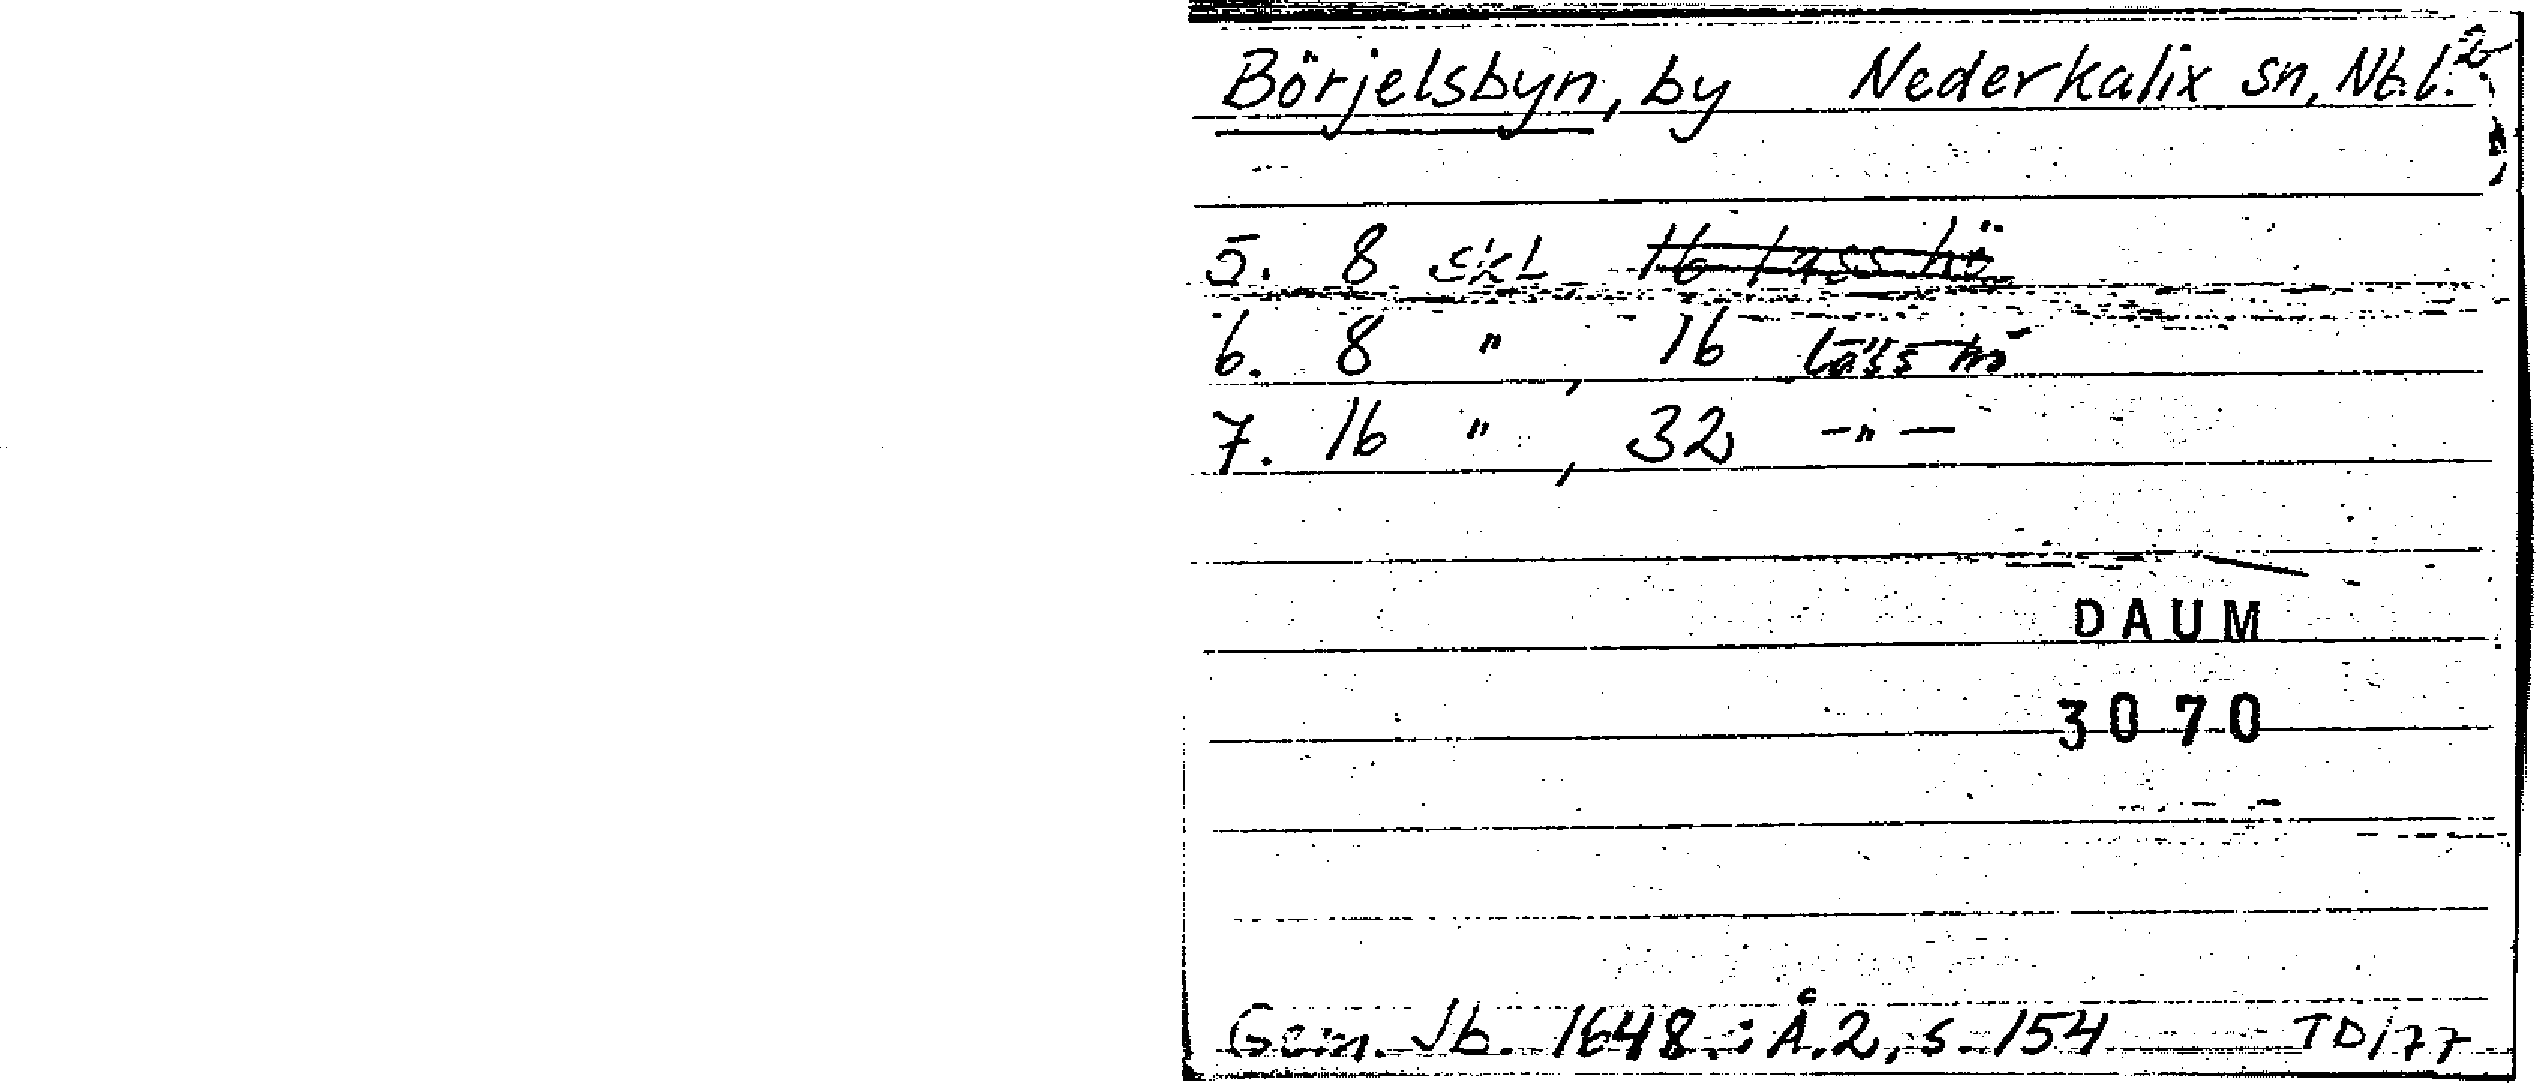 Börjelsbyn, by Nederkalix sn, Nb.l.
5. 8 skl 16 lass hö
6. 8 " , 16 lass hö
7. 16 " , 32 -"-
DAUM
3070
Gem. Jb. 1648.: Å.2, s. 154 TD/77